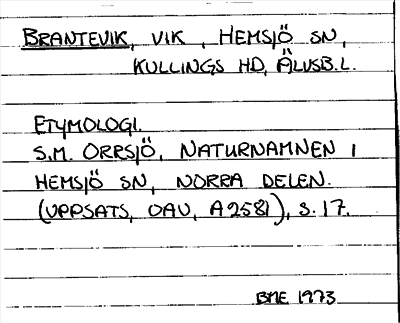 BRANTEVIK, VIK, HEMSJÖ SN,
KULLINGS HD, ÄLVSB.L.
ETYMOLOGI.
S.M. ORRSJÖ, NATURNAMNEN I
HEMSJÖ SN, NORRA DELEN.
(UPPSATS, OAU, A2581), S.17.
BME 1973